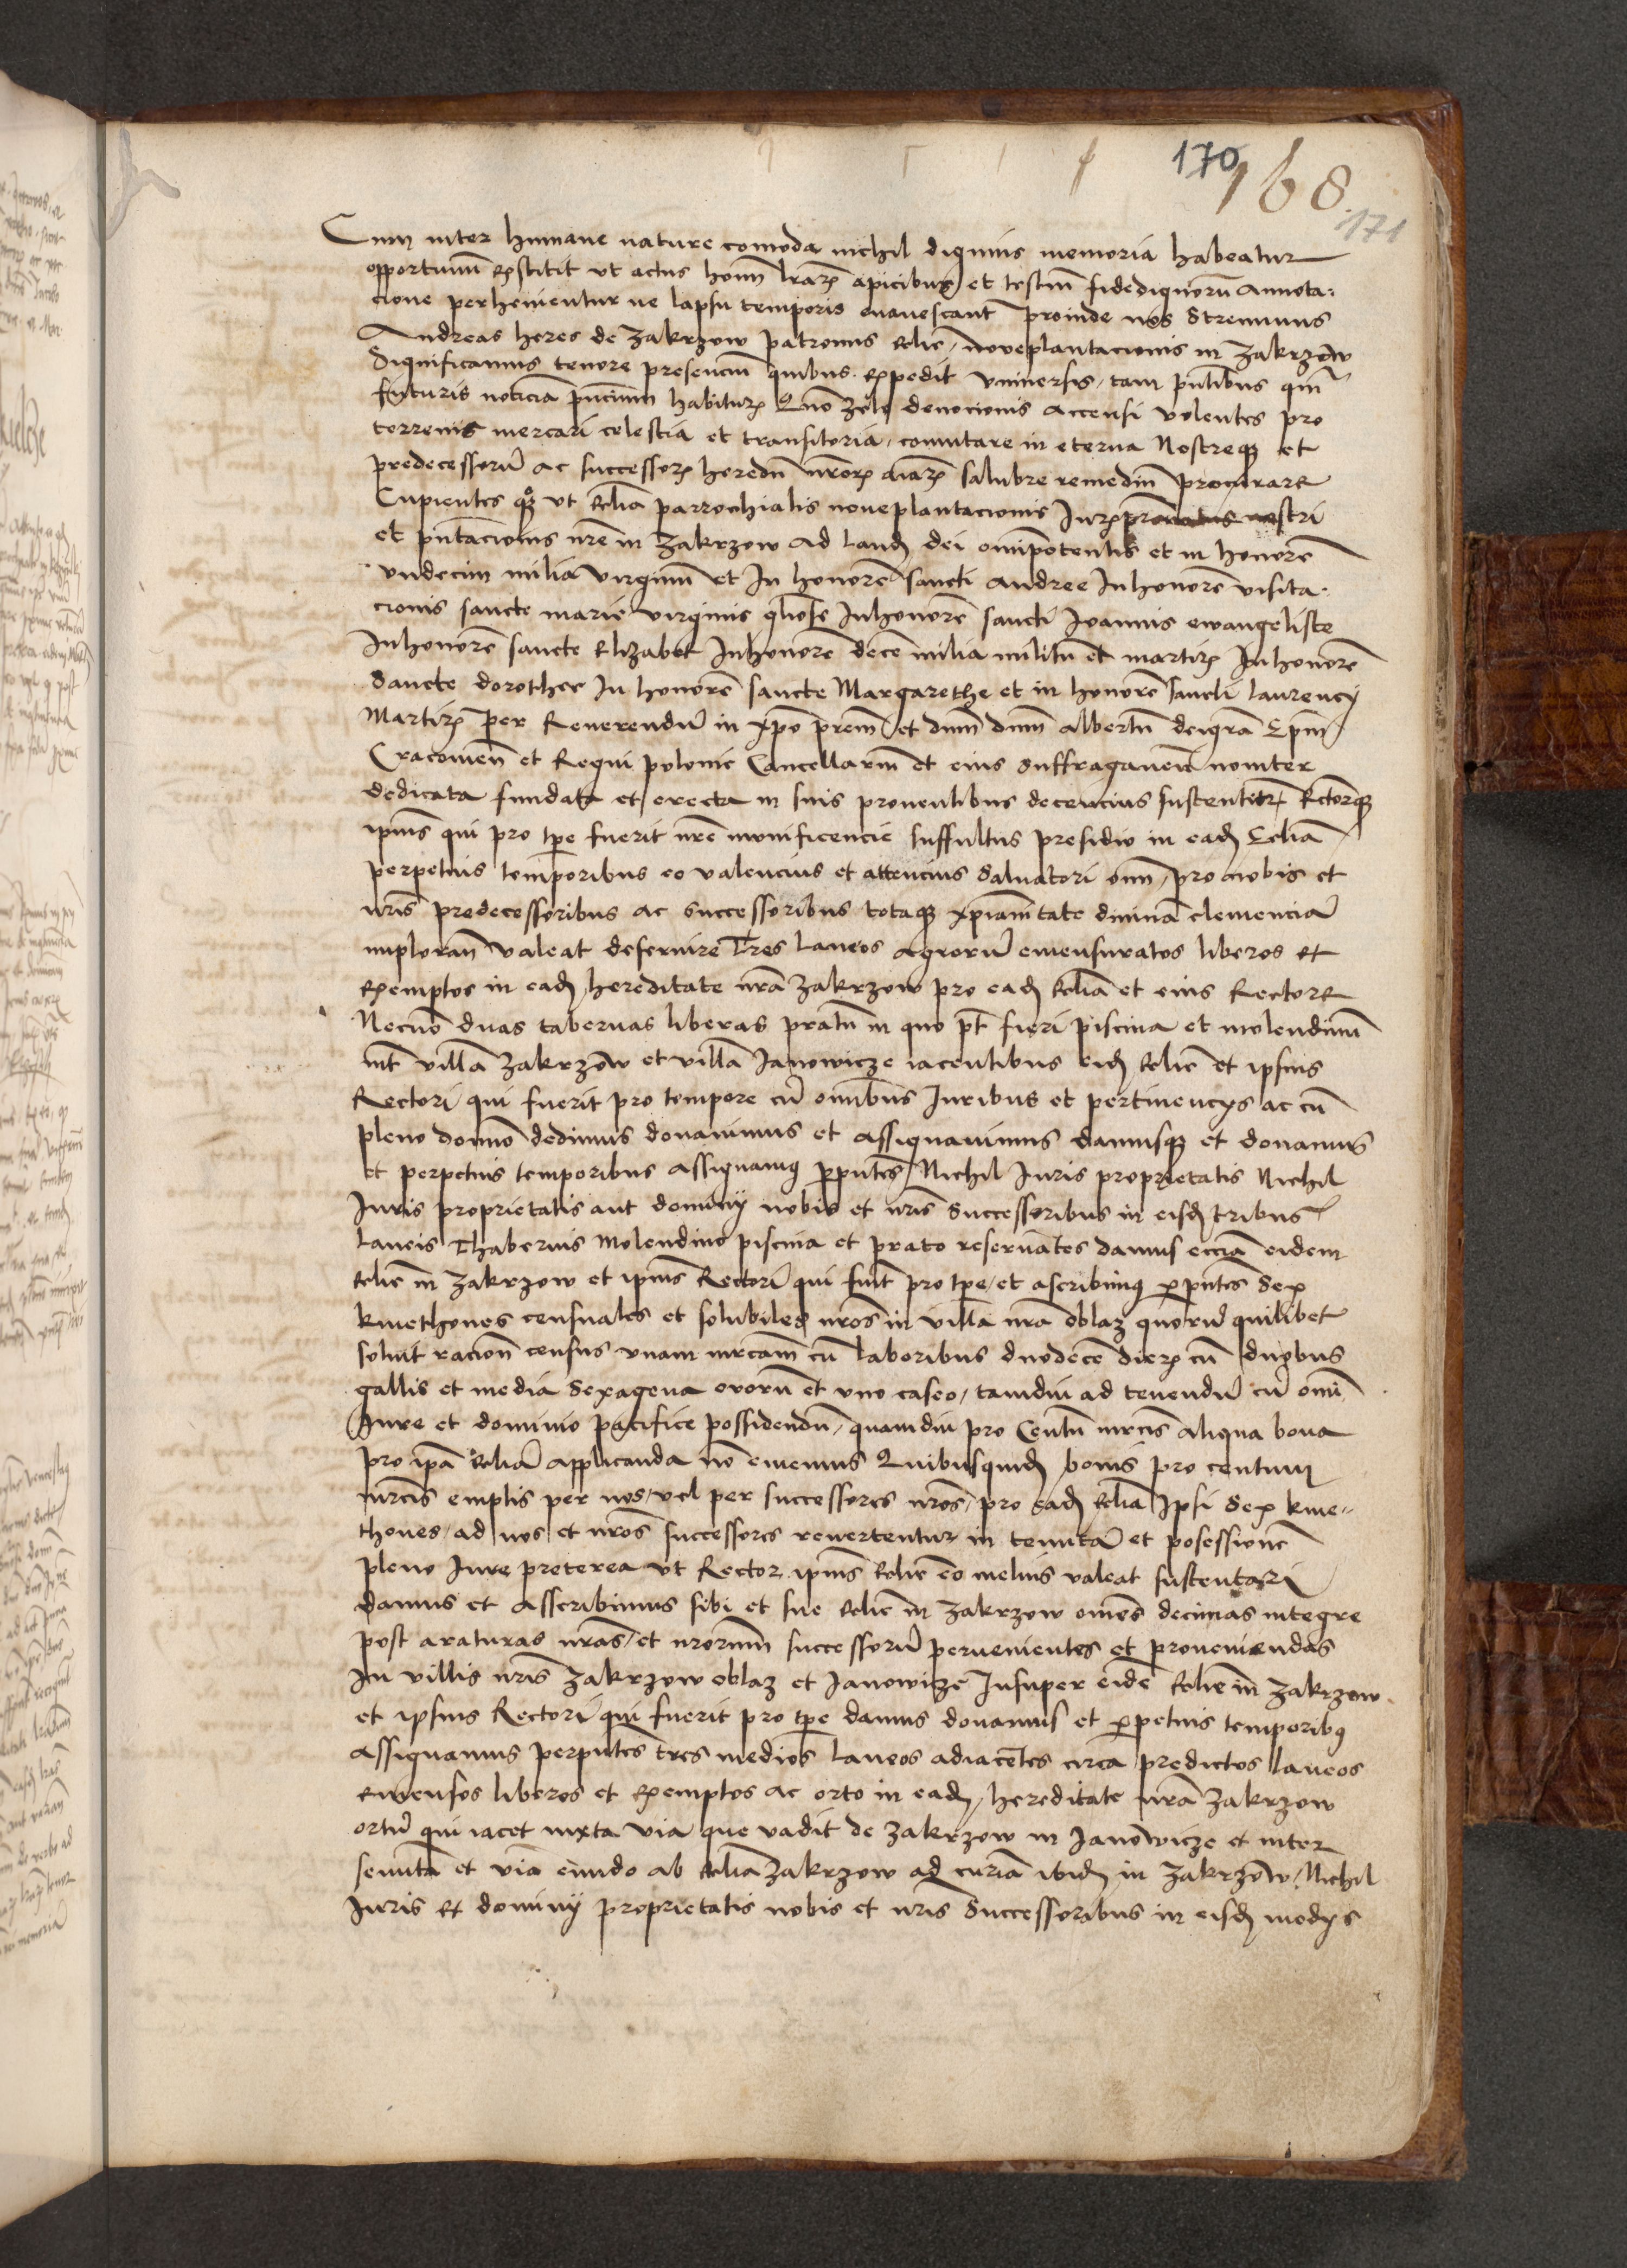 170
168.
171
Cum inter humane nature comoda nichil dignius memoria habeatur
opportunu͂ exstitit vt actus hom͂ lrar͂ apicibus et testiu͂ fidedignoru͂ Annota:
cione perhennentur ne lapsu temporis euanescant proinde nos Strennuus
Andreas heres de Zakrzow patronus eclie͂ noueplantacionis in Zakrzow
Significamus tenore presenciu͂ quibus expedit vniuersis tam pn͂tibus qua͂
futuris noticia͂ pn͂cium habitur͂ Quo͂ Zelo deuocionis accensi volentes pro
terrenis mercari celestia et transitoria comutare in eterna Nostreqꝫ et
predecessoru͂ ac successor͂ heredu͂ nr͂or͂ aiar͂ salubre remediu͂ procurare
Cupientes qꝫ vt eclia͂ parrochialis noueplantacionis Jur͂ nostri
et pn͂tacionis nr͂e in Zakrzow ad laude͂ dei omipotentis et in honore͂
vndecim milia virginu͂ et In honore͂ sancti Andree In honore͂ visita
cionis sancte marie virginis gliose͂ In honore͂ sancti Joannis ewangeliste
In honore͂ sancte Elizabet In honore͂ dece͂ milia militu͂ et martir͂ In honore͂
Sancte dorothee In honore͂ sancte Margarethe et in honore͂ sancti laurencij
Martir͂ per Reuerendu͂ in xp͂o pr͂em et dn͂m dn͂m albertu͂ deigr͂a Ep͂m
Cracouien͂ et Regni polonie Cancellariu͂ et eius suffraganeu͂ nouiter
dedicata fundata et erecta in suis prouentibus decencius sustentetur Rectorqꝫ
ipius͂ qui pro tp͂e fuerit nr͂e munificencie suffultus presidio in eade͂ Eclia͂
perpetuis temporibus eo valencius et attencius Saluatori om͂ pro nobis et
nr͂is predecessoribus ac successoribus totaqꝫ xp͂ianitate diuina͂ clemencia͂
imploran͂ valeat deseruire Tres laneos agroru͂ emensuratos liberos et
exemptos in eade͂ hereditate nr͂a Zakrzow pro eade͂ eclia͂ et eius Rectore
Necno͂ duas tabernas liberas pratu͂ in quo pt͂ fieri piscina et molendinu͂
int͂ villa͂ Zakrzow et villa͂ Janowicze iacentibus eide͂ eclie͂ et ipsius
Rectori qui fuerit pro tempore cu͂ omibus͂ Juribus et pertinencijs ac cu͂
pleno domio͂ dedimus donauimus et assignauimus damusqꝫ et donamus
et perpetuis temporibus assignamus p͂pn͂tes Nichil Juris proprietatis Nichil
Juris proprietatis aut dominij nobis et nr͂is Successoribus in eisde͂ tribus
laneis Thabernis Molendino piscina et prato reseruantes damus ecia͂ eidem
eclie͂ in Zakrzow et ipius͂ Rectori qui fuit͂ pro tp͂e et ascribimus p͂pn͂tes Sex
kmethones censuales et solubiles nr͂os in villa nr͂a oblaz quoru͂ quilibet
soluit racion͂ census vnam mrcam͂ cu͂ laboribus duodece͂ dier͂ cu͂ duobus
gallis et media sexagena ouoru͂ et vno caseo tamdiu ad tenendu͂ cu͂ omi͂
Jure et dominio pacifice possidendu͂ quamdiu pro Centu͂ mrcis͂ aliqua bona
pro ipa͂ eclia͂ applicanda no͂ ememus Quibusquide͂ bonis pro centum
mrcis͂ emptis per nos vel per successores nr͂os pro eade͂ eclia͂ Ipsi Sex kme-
thones ad nos et nr͂os successores reuertentur in tenuta͂ et posessione͂
pleno Jure preterea vt Rector ipius͂ eclie͂ eo melius valeat sustentari
damus et Asscribimus sibi et sue eclie͂ in Zakrzow omes͂ decimas integre
post araturas nr͂as et nr͂orum successoru͂ peruenientes et proueniendas
In villis nr͂is Zakrzow oblaz et Janowicze Insuper eide͂ eclie͂ in Zakrzow
et ipsius Rectori qui fuerit pro tp͂e damus donamus et p͂petuis temporibus
Assignamus perpn͂tes tres medios laneos adiacentes circa predictos laneos
emensos liberos et exemptos ac orto in eade͂ hereditate nr͂a Zakrzow
ortu͂ qui iacet iuxta via͂ que vadit de Zakrzow in Janowicze et inter
semita͂ et via͂ eundo ab eclia͂ Zakrzow ad curia͂ ibide͂ in Zakrzow Nichil
Juris et dominij proprietatis nobis et nr͂is Successoribus in eisde͂ medijs